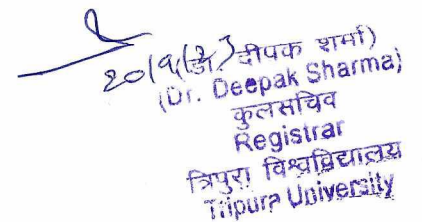 (डॉ. दीपक शर्मा)
(Dr. Deepak Sharma)
कुलसचिव
Registrar
त्रिपुरा विश्वविद्यालय
Tripura University